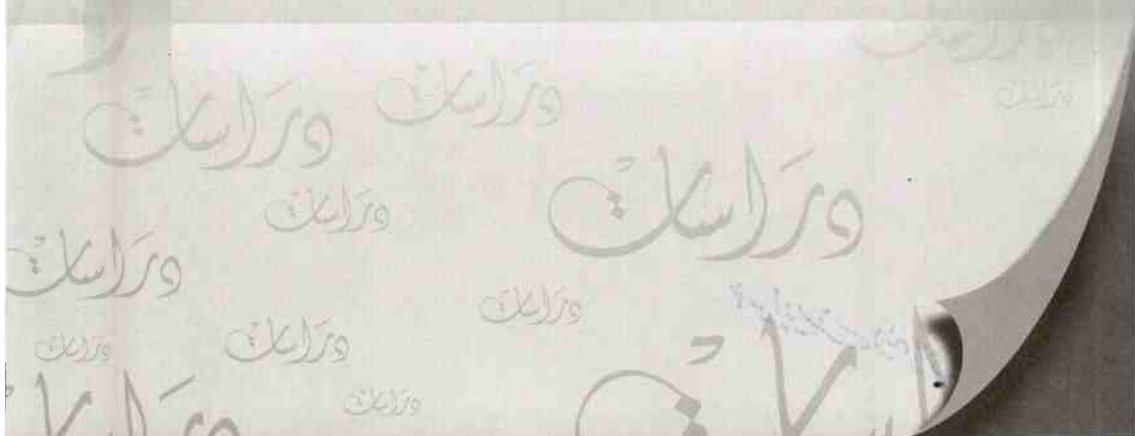 دراسات
دراسات
دراسات
دراسات
دراسات
دراسات
دراسات
دراسات
دراسات
دراسات
دراسات